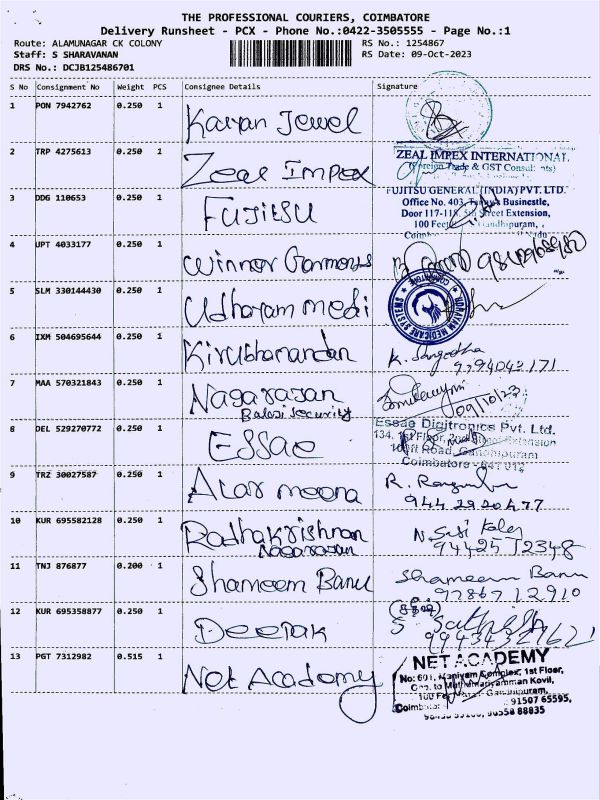 THE PROFESSIONAL COURIERS, COIMBATORE
Delivery Runsheet - PCX - Phone No.:0422-3505555 - Page No.:1
Route: ALAMUNAGAR CK COLONY RS No.: 1254867
Staff: S SHARAVANAN RS Date: 09-Oct-2023
DRS No.: DCJB125486701
S No Consignment No Weight PCS Consignee Details Signature
1 PON 7942762 0.250 1 Kavyan Jewel
2 TRP 4275613 0.250 1 Zeal Impex
ZEAL IMPEX INTERNATIONAL
(Foreign Trade & GST Consultants)
3 DDG 110653 0.250 1 Fujitsu
FUJITSU GENERAL (INDIA) PVT. LTD.
Office No. 403, Businestle,
Door 117-118, 5th Street Extension,
100 Feet Gandhipuram,
4 UPT 4033177 0.250 1 Winner Garments
5 SLM 330144430 0.250 1 Udhayam medi
UDHAYAM MEDICARE SYSTEMS
COIMBATORE
6 IXM 504695644 0.250 1 Kirubhanandan K. Sangeetha
9794042171
7 MAA 570321843 0.250 1 Nagarajan
Balaji Security 09/10/23
8 DEL 529270772 0.250 1 ESSAE
Essae Digitronics Pvt. Ltd.
134, 1st Floor, 2nd Street Extension
100ft Road, Gandhipuram
Coimbatore - 641 012
9 TRZ 30027587 0.250 1 Alar meena R.
944 2920477
10 KUR 695582128 0.250 1 Radhakrishnan N. Sasi
Nagarajan 94425 72348
11 TNJ 876877 0.200 1 Shameem Banu Shameem Banu
97867 12910
12 KUR 695358877 0.250 1 Deepak S. Sathish
13 PGT 7312982 0.515 1 Net Academy
NET ACADEMY
No: 601, Maniyam Complex, 1st Floor,
Opp. to Muthumariyamman Kovil,
100 Feet Road, Gandhipuram,
Coimbatore 91507 65595,
88835